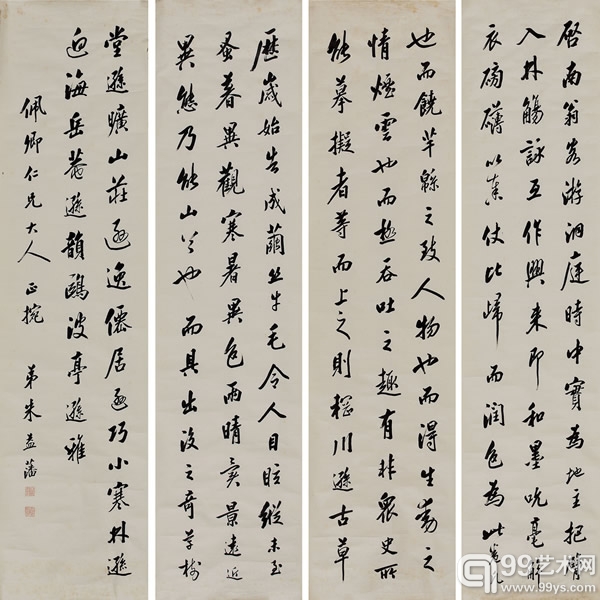 啓南翁客游洞庭時中實為地主把臂
入林觴詠互作興來即和墨吮毫解
衣磅礴以奉仗比歸而潤色為此卷凡
也而饒芊緜之致人物也而得生動之
情煙雲也而極吞吐之趣有非眾史所
能摹擬者等而上之則輞川遜古草
歷歲始告成繭絲牛毛令人目眩縱未至
蚤暮異觀寒暑異色雨晴異景遠近
異態乃能山谷也而具出沒之奇草樹
堂遜曠山莊遜逸僊居遜巧小寒林遜
迫海岳菴遜韻鷗波亭遜雅
佩卿仁兄大人正捥 弟朱益藩
99艺术网
www.99ys.com